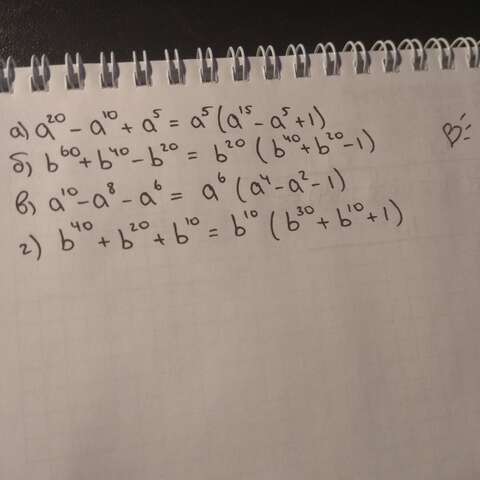 а) a²⁰ - a¹⁰ + a⁵ = a⁵ (a¹⁵ - a⁵ + 1)
б) b⁶⁰ + b⁴⁰ - b²⁰ = b²⁰ (b⁴⁰ + b²⁰ - 1)
в) a¹⁰ - a⁸ - a⁶ = a⁶ (a⁴ - a² - 1)
г) b⁴⁰ + b²⁰ + b¹⁰ = b¹⁰ (b³⁰ + b¹⁰ + 1)